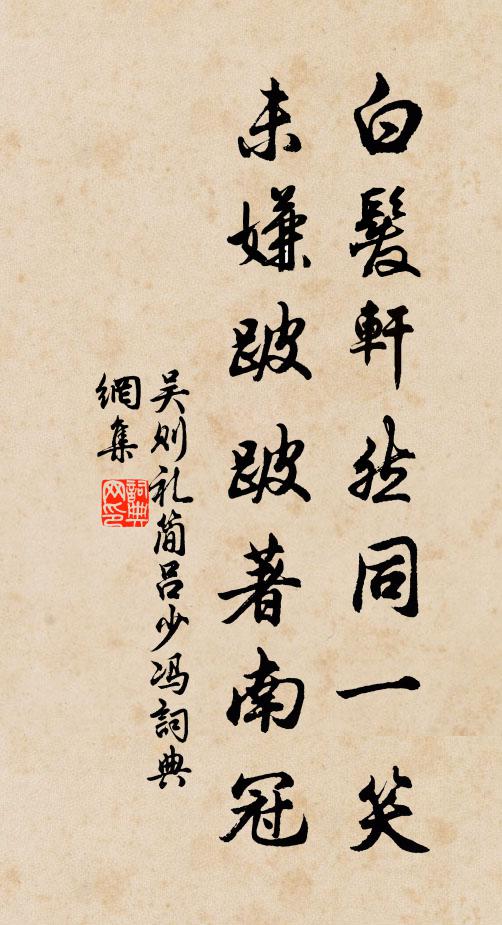 白髮軒然同一笑
未嫌跛跛著南冠
吴则礼简吕少冯詞典
網集
詞典网印